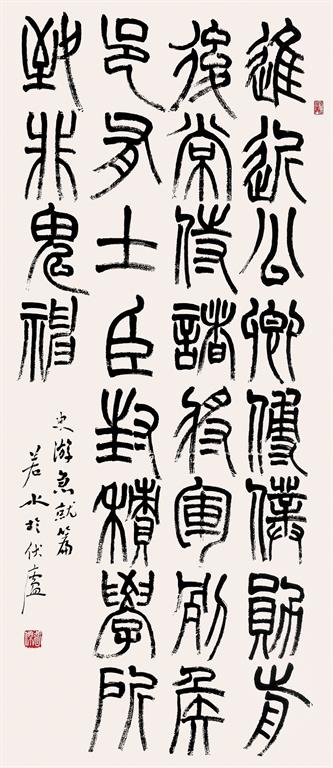 進近公卿傅僕勛前
後常侍諸將軍列侯
邑有土臣封積學所
致非鬼神
史游急就篇
若水於伏廬